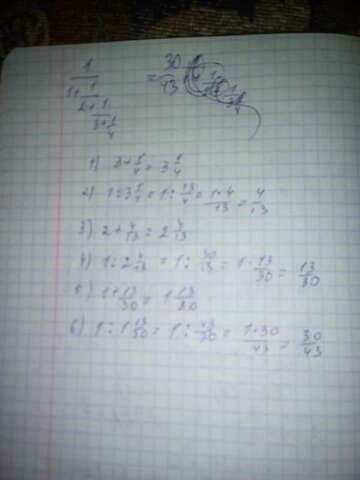 1/(1+1/(2+1/(3+1/4))) = 30/43
1) 3+1/4=3 1/4
2) 1:3 1/4=1:13/4=1·4/13=4/13
3) 2+4/13=2 4/13
4) 1:2 4/13=1:30/13=1·13/30=13/30
5) 1+13/30=1 13/30
6) 1:1 13/30=1:43/30=1·30/43=30/43